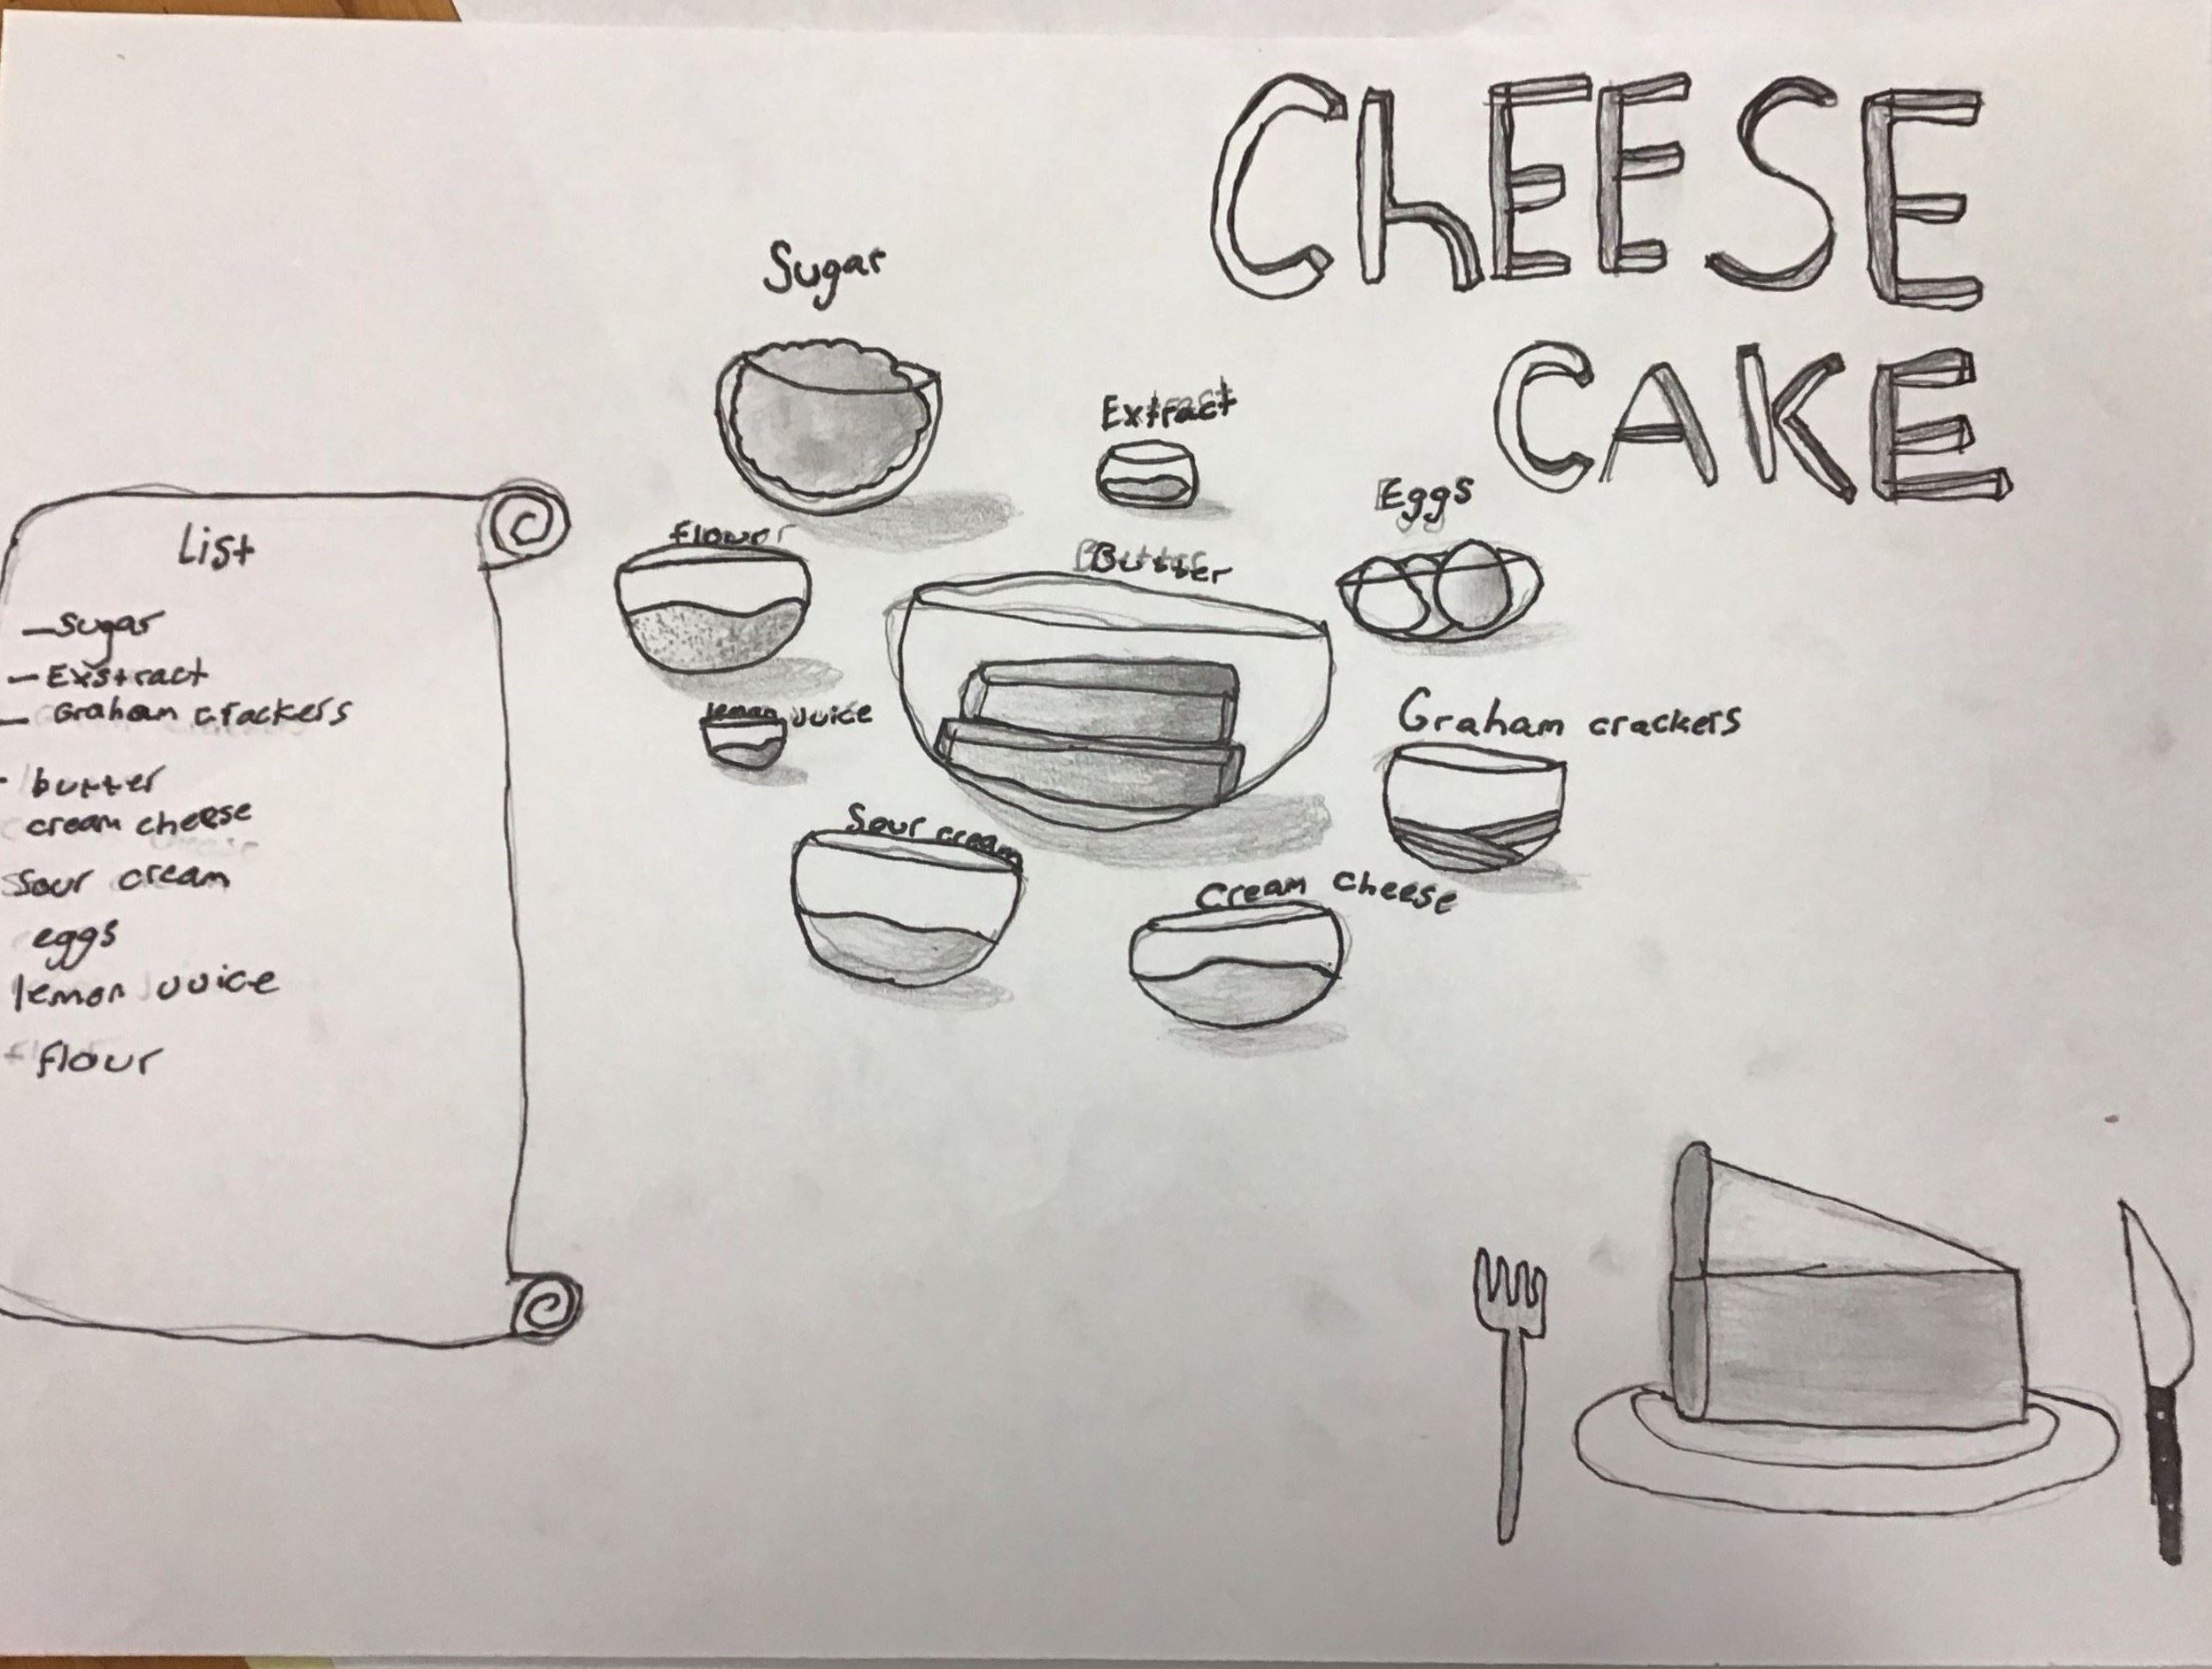 ChEESE
CAKE
Sugar
Extract
Eggs
flour
Butter
lemon juice
Graham crackers
Sour cream
Cream cheese
List
- Sugar
- Exstract
- Graham crackers
- butter
cream cheese
Sour cream
eggs
lemon juice
flour